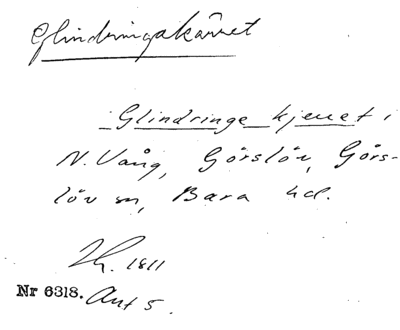 Glindringakärret
Glindringe kjerret i
N. Vång, Görslöv, Görs-
löv sn, Bara hd.
1811
Nr 6318. Akt 5.